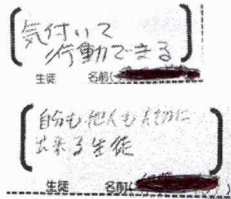 気付いて
行動できる
生徒 名前(
自分も他人も大切に
出来る生徒
生徒 名前( )